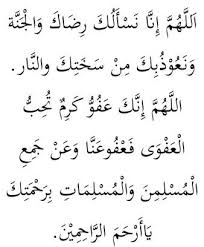 اَللَّهُمَّ إِنَّا نَسْأَلُكَ رِضَاكَ وَالْجَنَّةَ
وَنَعُوْذُبِكَ مِنْ سَخَتِكَ وَالنَّار.
اللَّهُمَّ إِنَّكَ عَفُوٌّ كَرِمٌ تُحِبُّ
الْعَفْوَى فَعْفُوعَنَّا وَعَنْ جَمِعِ
الْمُسْلِمِنَ وَالْمُسْلِمَاتِ بِرَحْمَتِكَ
يَاأَرْحَمَ الرَّاحِمِيْنَ.